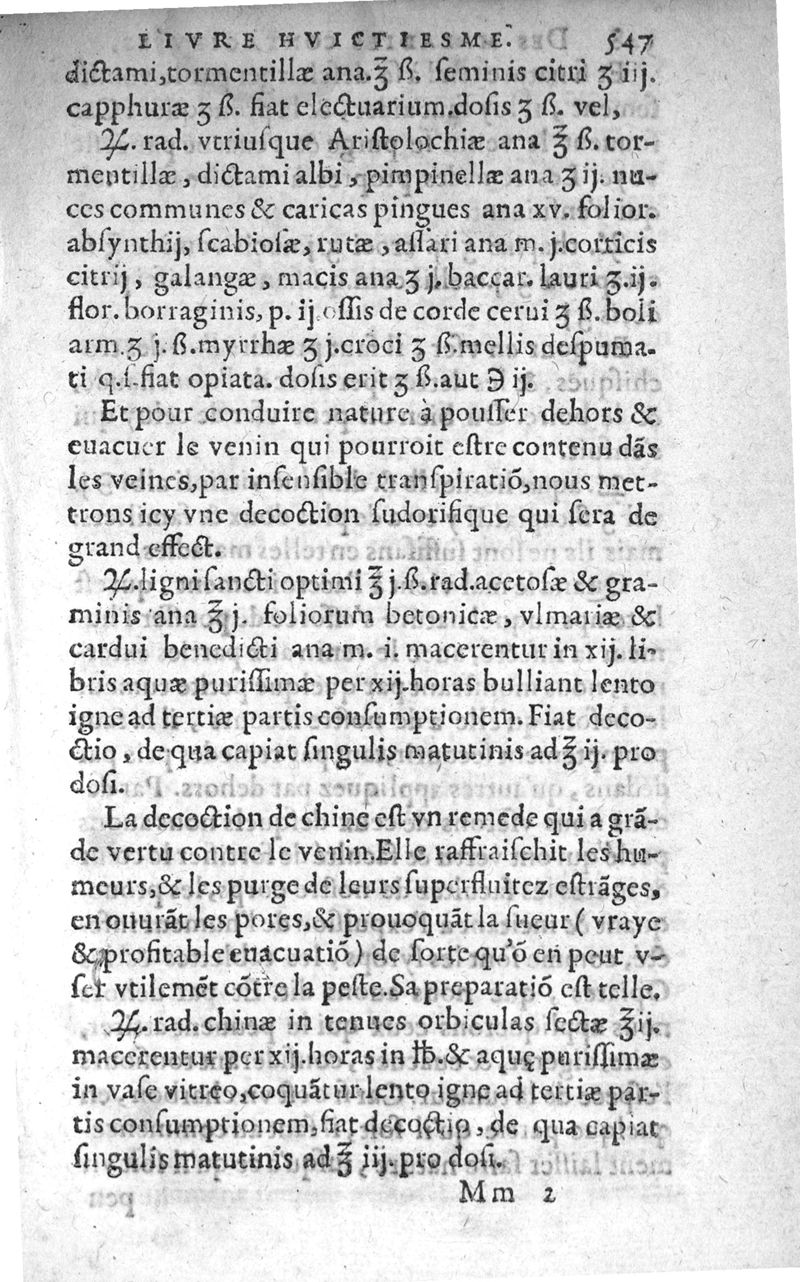 LIVRE HVICTIESME. 547
dictami,tormentillæ ana.℥ ß. ſeminis citri ʒ iij.
capphuræ ʒ ß. fiat electuarium.doſis ʒ ß. vel,
♃. rad. vtriuſque Ariſtolochiæ ana ℥ ß. tor-
mentillæ, dictami albi, pimpinellæ ana ʒ ij. nu-
ces communes & caricas pingues ana xv. folior.
abſynthij, ſcabioſæ, rutæ, aſſari ana m. j.corticis
citrij, galangæ, macis ana ʒ j. baccar. lauri ʒ.ij.
flor. borraginis, p. ij oſſis de corde cerui ʒ ß. boli
arm.ʒ j.ß.myrrhæ ʒ j.croci ʒ ß.mellis deſpuma-
ti q.ſ.fiat opiata. doſis erit ʒ ß.aut ℈ ij.
Et pour conduire nature à pouſſer dehors &
euacuer le venin qui pourroit eſtre contenu dãs
les veines,par inſenſible tranſpiratiõ,nous met-
trons icy vne decoction ſudorifique qui ſera de
grand effect.
♃.ligni ſancti optimi ℥ j.ß.rad.acetoſæ & gra-
minis ana ℥ j. foliorum betonicæ, vlmariæ &
cardui benedicti ana m. i. macerentur in xij. li-
bris aquæ puriſſimæ per xij.horas bulliant lento
igne ad tertiæ partis conſumptionem. Fiat deco-
ctio, de qua capiat ſingulis matutinis ad ℥ ij. pro
doſi.
La decoction de chine eſt vn remede qui a grã-
de vertu contre le venin.Elle raffraiſchit les hu-
meurs,& les purge de leurs ſuperfluitez eſtrãges,
en ouurãt les pores,& prouoquãt la ſueur ( vraye
& profitable euacuatiõ) de ſorte qu'õ en peut v-
ſer vtilemẽt cõtre la peſte.Sa preparatiõ eſt telle.
♃. rad. chinæ in tenues orbiculas ſectæ ℥ij.
macerentur per xij.horas in ℔.& aquę puriſſimæ
in vaſe vitreo,coquãtur lento igne ad tertiæ par-
tis conſumptionem,fiat decoctio, de qua capiat
ſingulis matutinis ad ℥ iij. pro doſi.
Mm 2